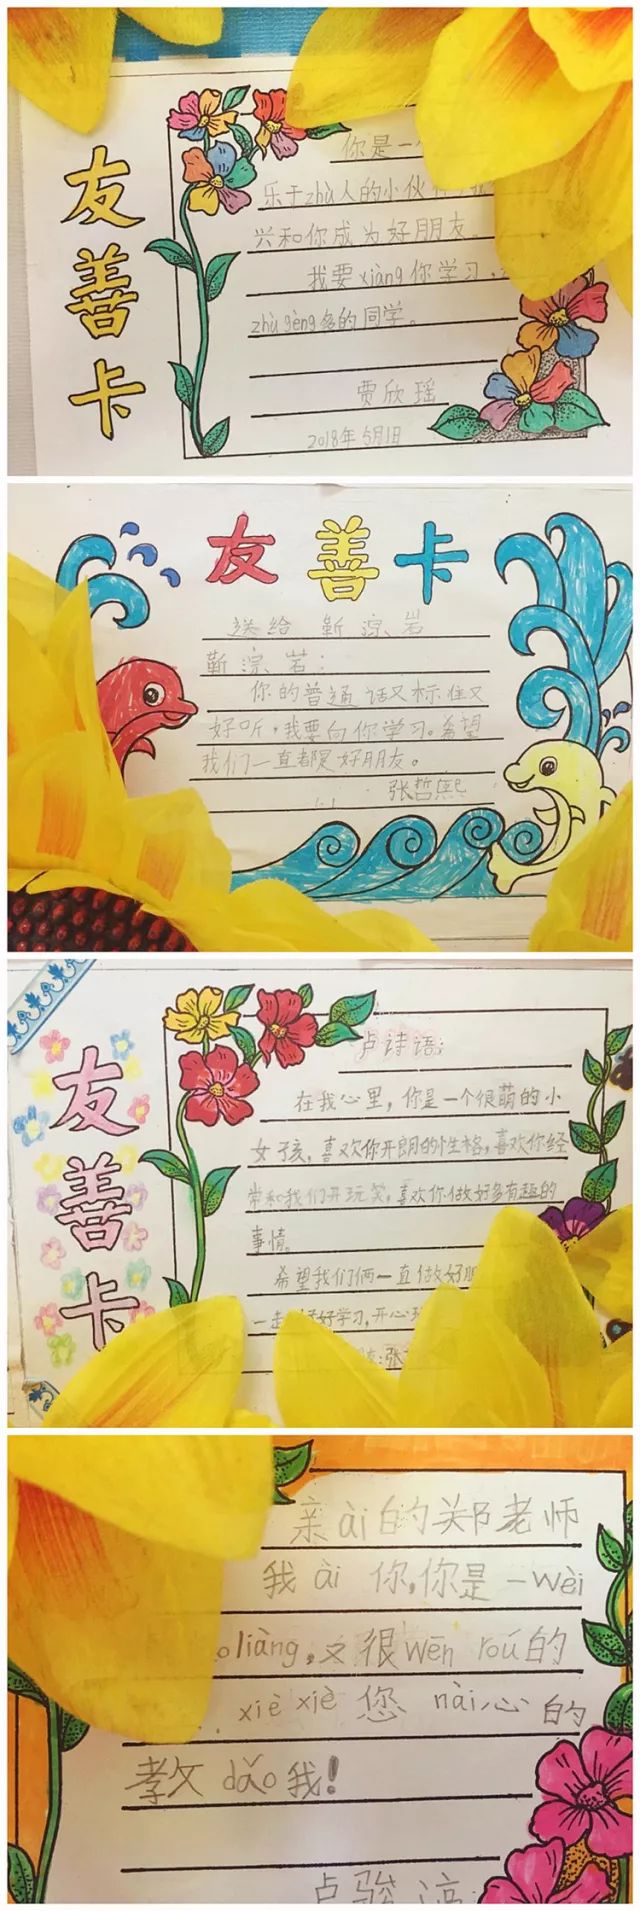 友善卡
你是一个
乐于zhù人的小伙伴,我
兴和你成为好朋友。
我要xiàng你学习,
zhù gèng多的同学。
贾欣瑶
2018年5月1日
友善卡
送给 靳淙岩
靳淙岩:
你的普通话又标准又
好听,我要向你学习。希望
我们一直都是好朋友。
张哲熙
友善卡
卢诗语:
在我心里,你是一个很萌的小
女孩,喜欢你开朗的性格,喜欢你经
常和我们开玩笑,喜欢你做好多有趣的
事情。
希望我们俩一直做好朋
一起好好学习,开心
张
亲ài的郑老师
我ài你,你是一wèi
oliàng,又很wēn roú的
xiè xiè 您 nài心的
教dǎo我!
卢骏